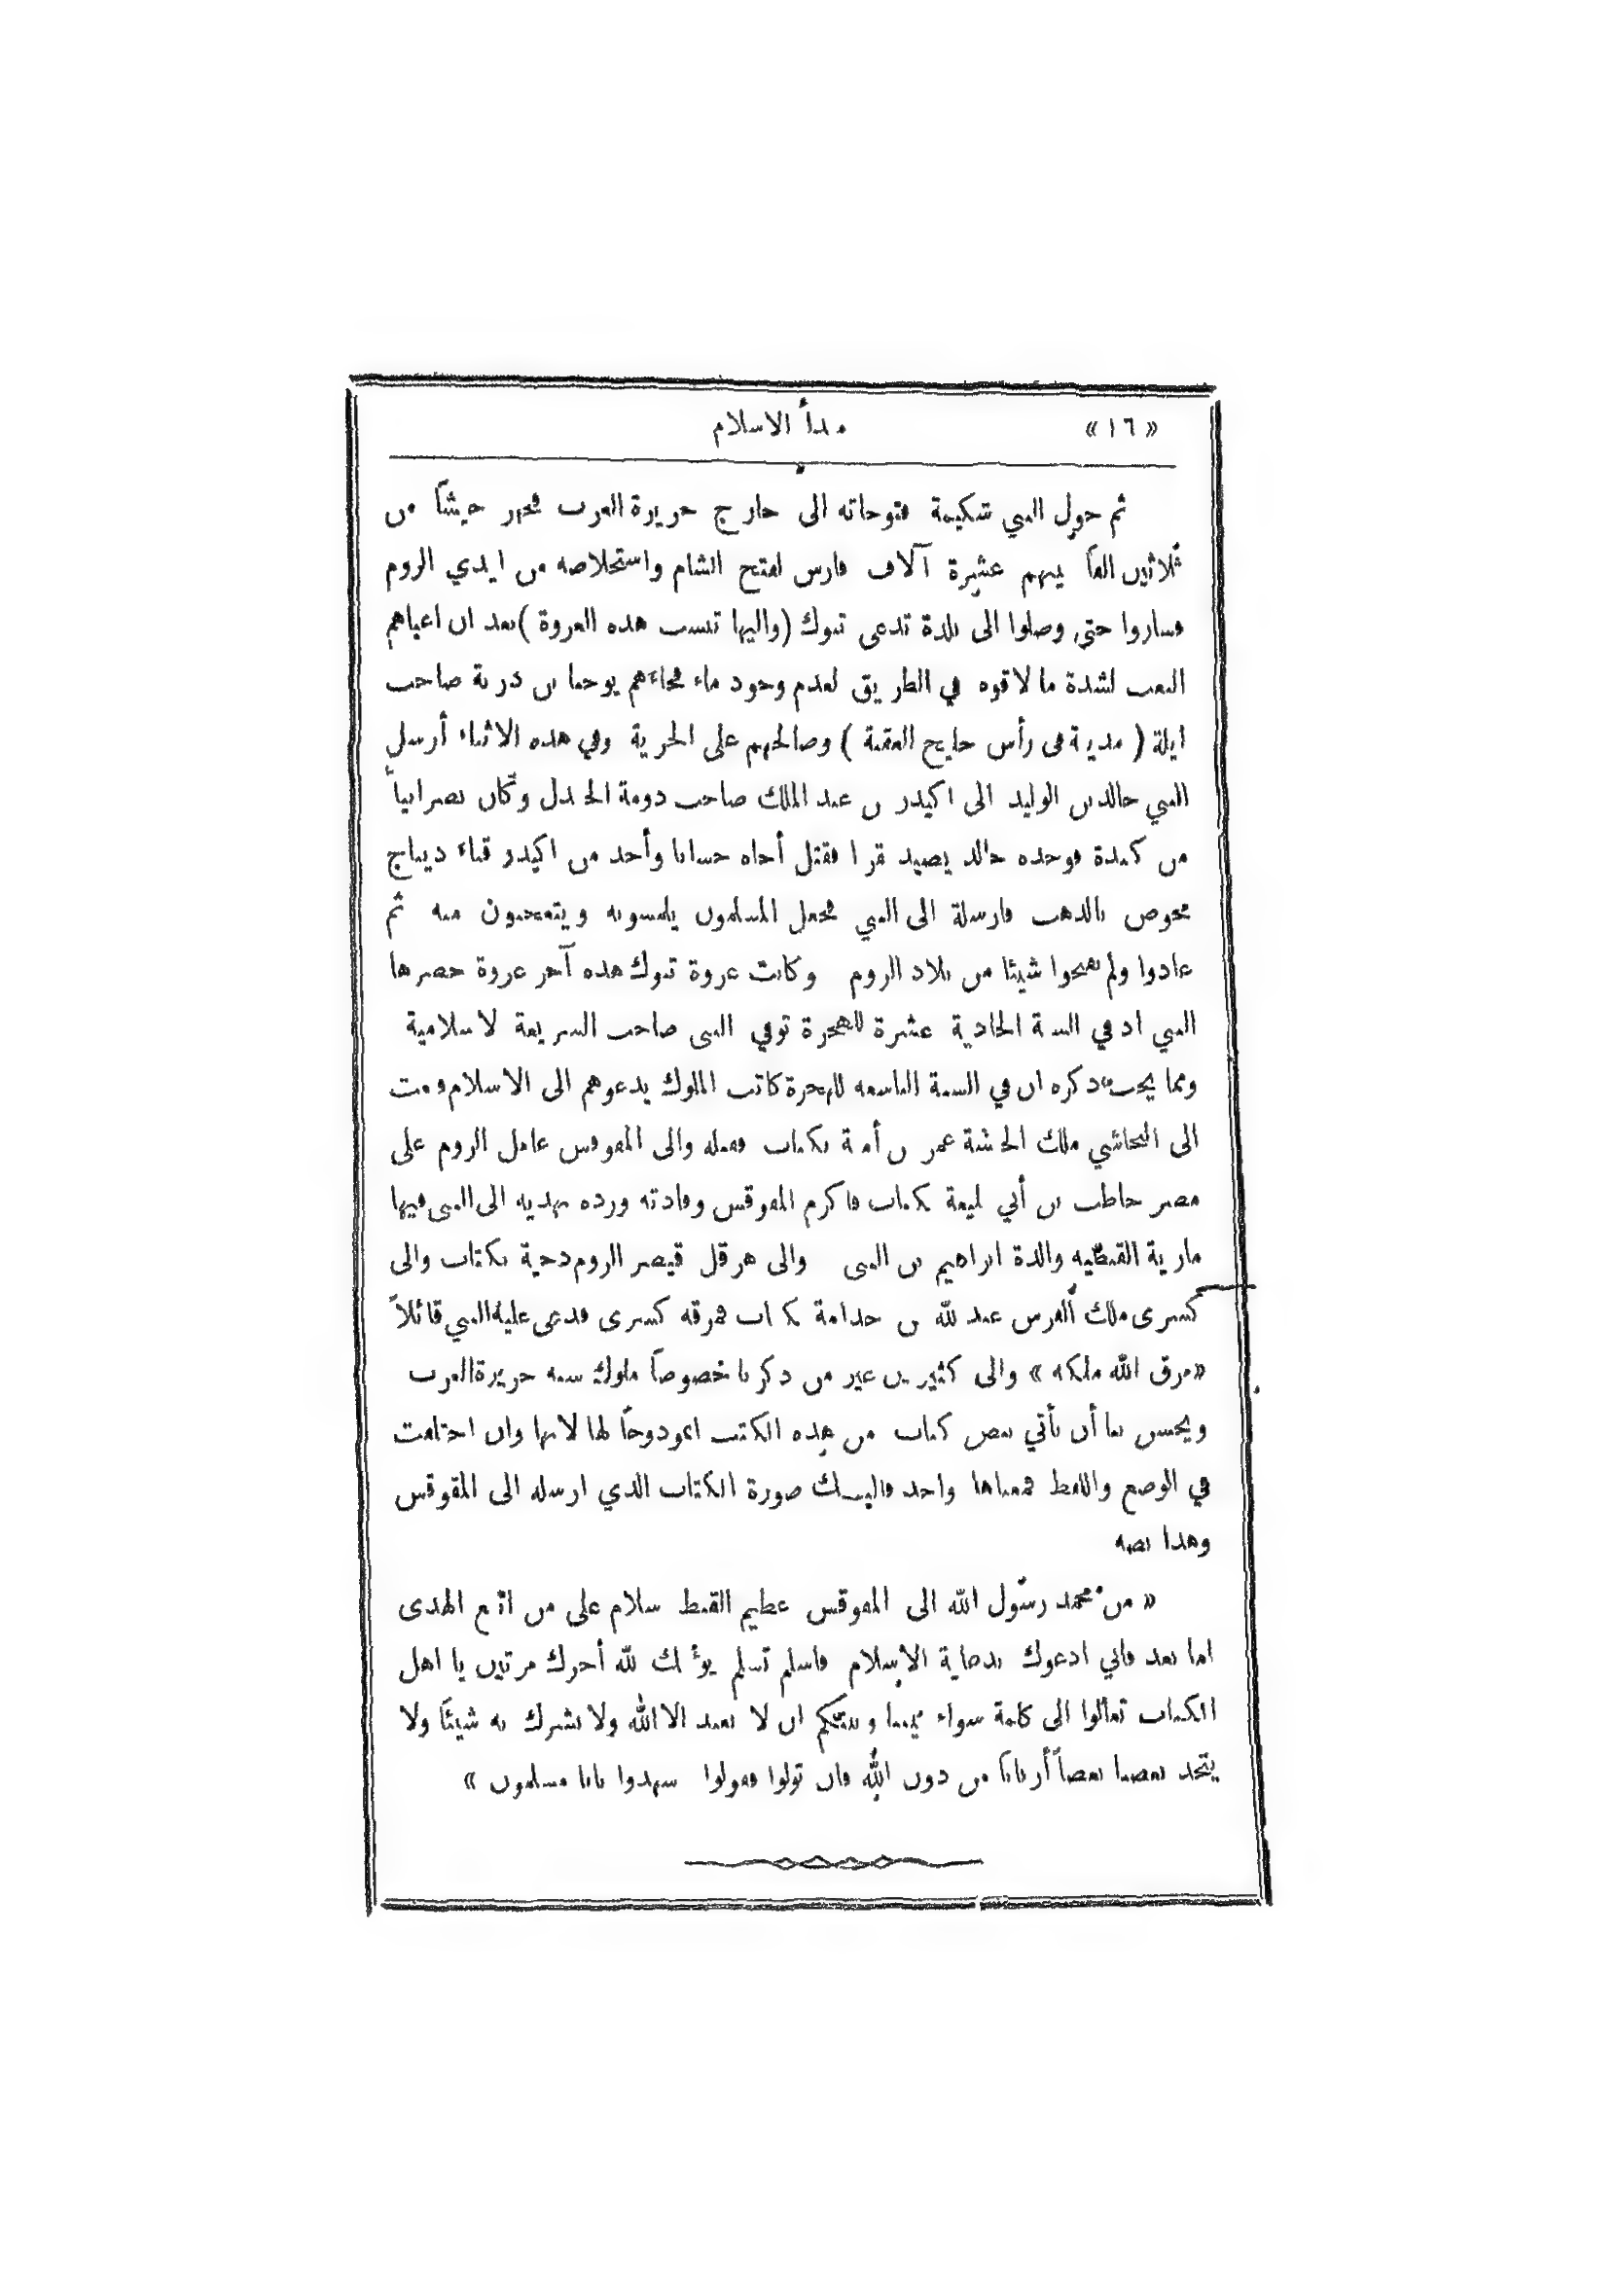 «١٦» مبدأ الاسلام
ثم حول النبي شكيمة فتوحاته الى خارج جزيرة العرب فجهز جيشًا من
ثلاثين الفًا بينهم عشرة آلاف فارس لفتح الشام واستخلاصه من ايدي الروم
فساروا حتى وصلوا الى بلدة تدعى تبوك (واليها تنسب هذه الغزوة) بعد ان اعياهم
التعب لشدة ما لاقوه في الطريق لعدم وجود ماء فجاءهم يوحنا بن دربة صاحب
ايلة (مدينة في رأس خليج العقبة) وصالحهم على الجزية وفي هذه الاثناء أرسل
النبي خالد بن الوليد الى اكيدر بن عبد الملك صاحب دومة الجندل وكان نصرانيًا
من كندة فوجده خالد يصيد بقرا فقتل أخاه حسانا وأخذ من اكيدر قباء ديباج
مخوص بالذهب فارسلة الى النبي فجعل المسلمون يلمسونه ويتعجبون منه ثم
عادوا ولم يفتحوا شيئًا من بلاد الروم وكانت غزوة تبوك هذه آخر غزوة حضرها
النبي اذ في السنة الحادية عشرة للهجرة توفي النبي صاحب الشريعة الاسلامية
ومما يجب ذكره ان في السنة التاسعه للهجرة كاتب الملوك يدعوهم الى الاسلام فبعث
الى النجاشي ملك الحبشة عمر بن أمية بكتاب فقبله والى المقوقس عامل الروم على
مصر حاطب بن أبي بلتعة بكتاب فاكرم المقوقس وفادته ورده بهديه الى النبي فيها
مارية القبطيه والدة ابراهيم بن النبي والى هرقل قيصر الروم دحية بكتاب والى
كسرى ملك الفرس عبد الله بن حذامة بكتاب فمزقه كسرى فدعى عليه النبي قائلاً
«مزق الله ملكه» والى كثيرين غير من ذكرنا خصوصًا ملوك شبه جزيرة العرب
ويحسن بنا أن نأتي بنص كتاب من هذه الكتب انموذجًا لها لانها وان اختلفت
في الوضع واللفظ فمعناها واحد فاليك صورة الكتاب الذي ارسله الى المقوقس
وهذا نصه
«من محمد رسول الله الى المقوقس عظيم القبط سلام على من اتبع الهدى
اما بعد فاني ادعوك بدعاية الاسلام فاسلم تسلم يؤتك الله أجرك مرتين يا اهل
الكتاب تعالوا الى كلمة سواء بيننا وبينكم ان لا نعبد الا الله ولا نشرك به شيئًا ولا
يتخذ بعضنا بعضًا أربابًا من دون الله فان تولوا فقولوا اشهدوا بانا مسلمون»